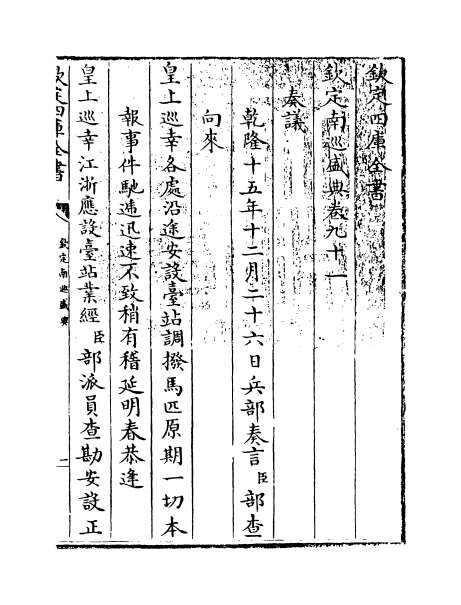 欽定四庫全書
欽定南巡盛典卷九十一
奏議
乾隆十五年十二月二十六日兵部奏言臣部查
向來
皇上巡幸各處沿途安設臺站調撥馬匹原期一切本
報事件馳遞迅速不致稍有稽延明春恭逢
皇上巡幸江浙應設臺站業經臣部派員查勘安設正
欽定四庫全書
欽定南巡盛典
二